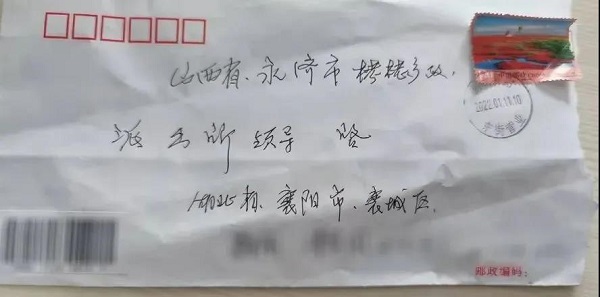 山西省、永济市栲栳乡政、
派出所领导 启
湖北省、襄阳市、襄城区
2022.01.11.10
邮政编码: